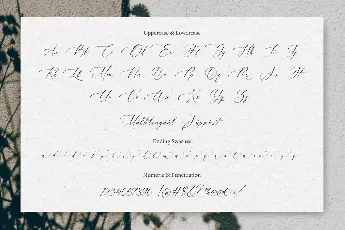 Uppercase & Lowercase
Aa Bb Cc Dd Ee Ff Gg Hh Ii Jj
Kk Ll Mm Nn Oo Pp Qq Rr Ss Tt
Uu Vv Ww Xx Yy Zz
Multilingual Support
Ending Swashes
Numeric & Punctuation